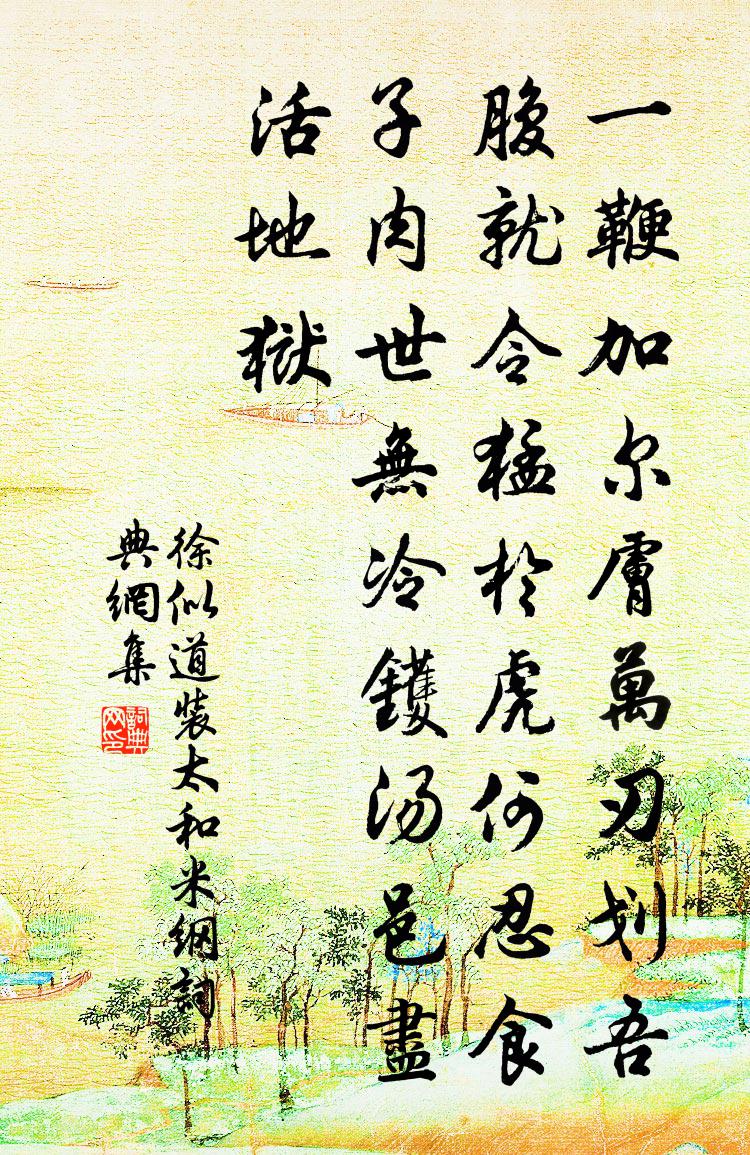 一鞭加尔膚萬刃划吾
腹就令猛於虎何忍食
子肉世無冷鑊汤邑盡
活地獄
徐似道裝太和米綱詞
典網集
詞典网印